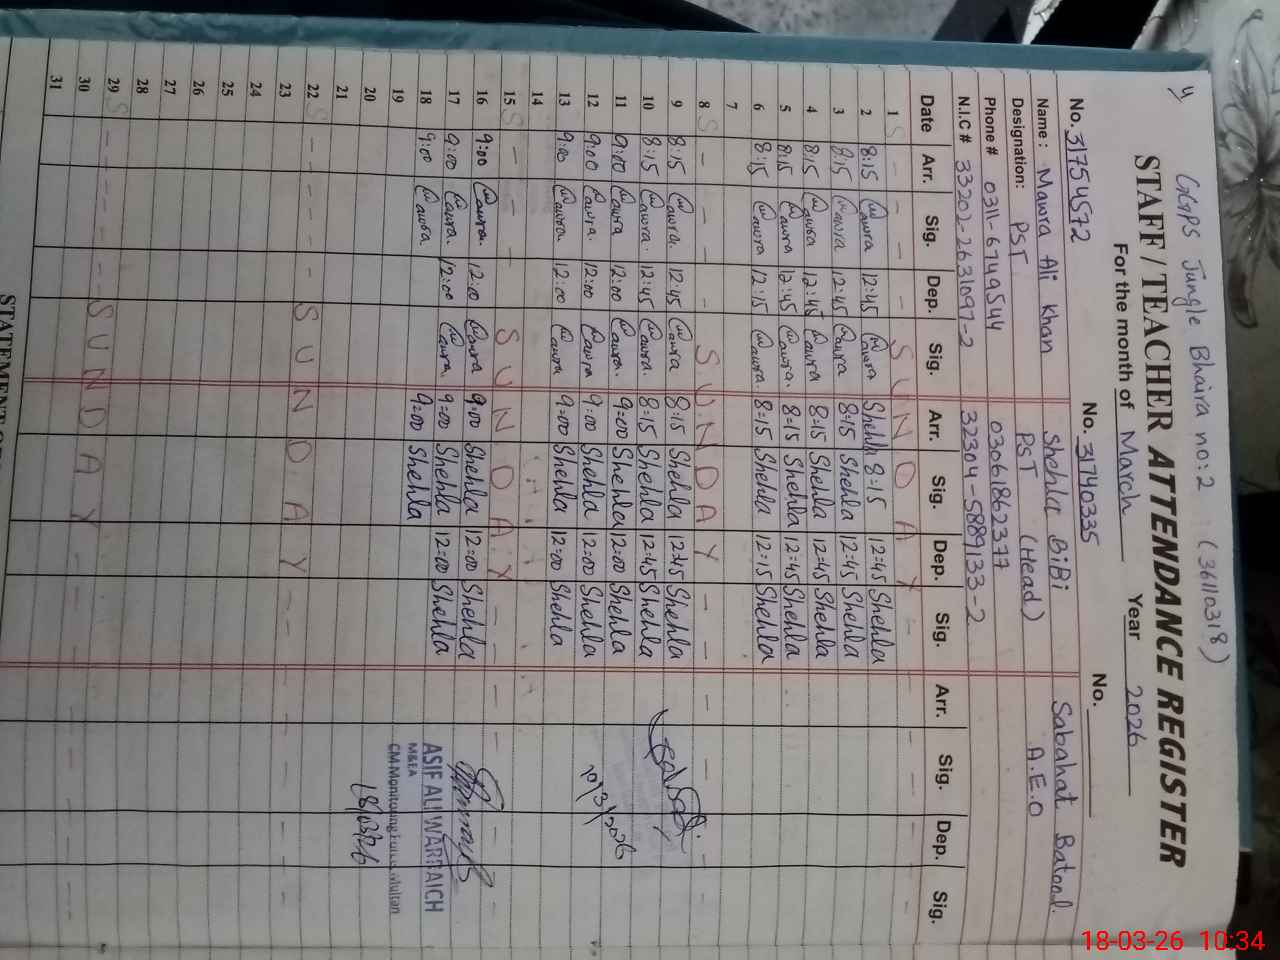 4
GGPS Jungle Bhaira no:2 (36110318)
STAFF / TEACHER ATTENDANCE REGISTER
For the month of March Year 2026
No. 31754572 No. 31740335 No.
Name: Mawra Ali Khan Shehla BiBi Sabahat Batool.
Designation: PST PST (Head) A.E.O
Phone # 0311-6749544 03061862377
N.I.C # 33202-2631097-2 32304-5889133-2
Date Arr. Sig. Dep. Sig. Arr. Sig. Dep. Sig. Arr. Sig. Dep. Sig.
1 S - - - SUNDAY - -
2 8:15 Mawra 12:45 Mawra Shehla 8:15 12:45 Shehla
3 8:15 Mawra 12:45 Mawra 8:15 Shehla 12:45 Shehla
4 8:15 Mawra 12:45 Mawra 8:15 Shehla 12:45 Shehla
5 8:15 Mawra 12:45 Mawra. 8:15 Shehla 12:45 Shehla
6 8:15 Mawra 12:15 Mawra. 8:15 Shehla 12:15 Shehla
7
8 S - - - SUNDAY - - -
9 8:15 Mawra. 12:45 Mawra 8:15 Shehla 12:45 Shehla
10 8:15 Mawra. 12:45 Mawra. 8:15 Shehla 12:45 Shehla
11 9:00 Mawra 12:00 Mawra. 9:00 Shehla 12:00 Shehla
12 9:00 Mawra. 12:00 Mawra 9:00 Shehla 12:00 Shehla
13 9:00 Mawra. 12:00 Mawra 9:00 Shehla 12:00 Shehla
14
15 S - - - SUNDAY - - -
16 9:00 Mawra. 12:00 Mawra 9:00 Shehla 12:00 Shehla
17 9:00 Mawra. 12:00 Mawra. 9:00 Shehla 12:00 Shehla
18 9:00 Mawra 9:00 Shehla
19
20
21
22 S - - - SUNDAY - -
23
24
25
26
27
28
29 S - - - SUNDAY - - -
30
31
10/3/2026
ASIF ALI WARRAICH
M&EA
CM Monitoring Force, Multan
18/03/26
18-03-26 10:34